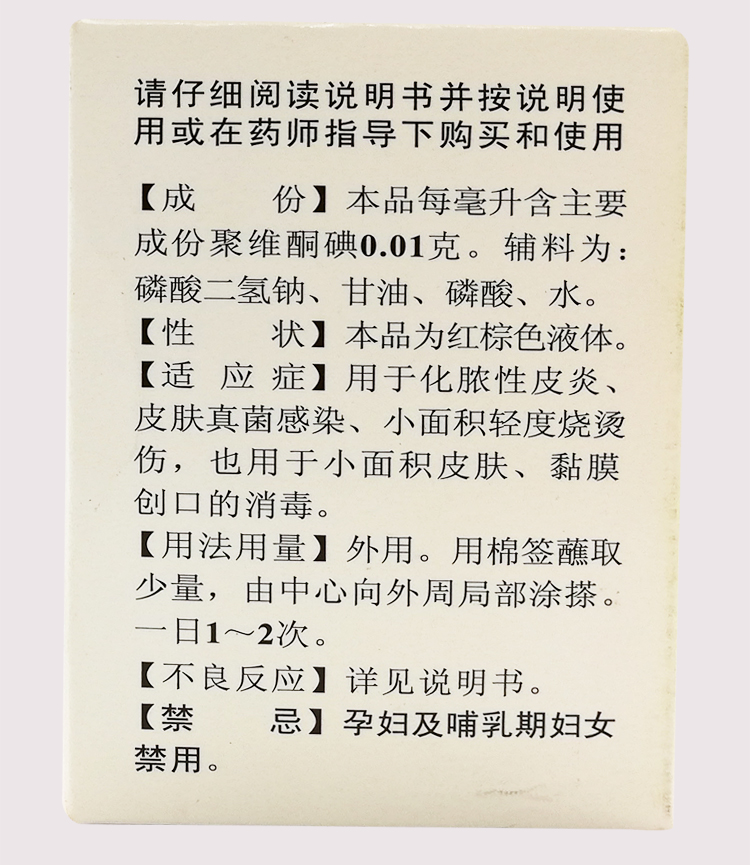 请仔细阅读说明书并按说明使
用或在药师指导下购买和使用
【成 份】本品每毫升含主要
成份聚维酮碘0.01克。辅料为：
磷酸二氢钠、甘油、磷酸、水。
【性 状】本品为红棕色液体。
【适 应 症】用于化脓性皮炎、
皮肤真菌感染、小面积轻度烧烫
伤，也用于小面积皮肤、黏膜
创口的消毒。
【用法用量】外用。用棉签蘸取
少量，由中心向外周局部涂搽。
一日1～2次。
【不良反应】详见说明书。
【禁 忌】孕妇及哺乳期妇女
禁用。